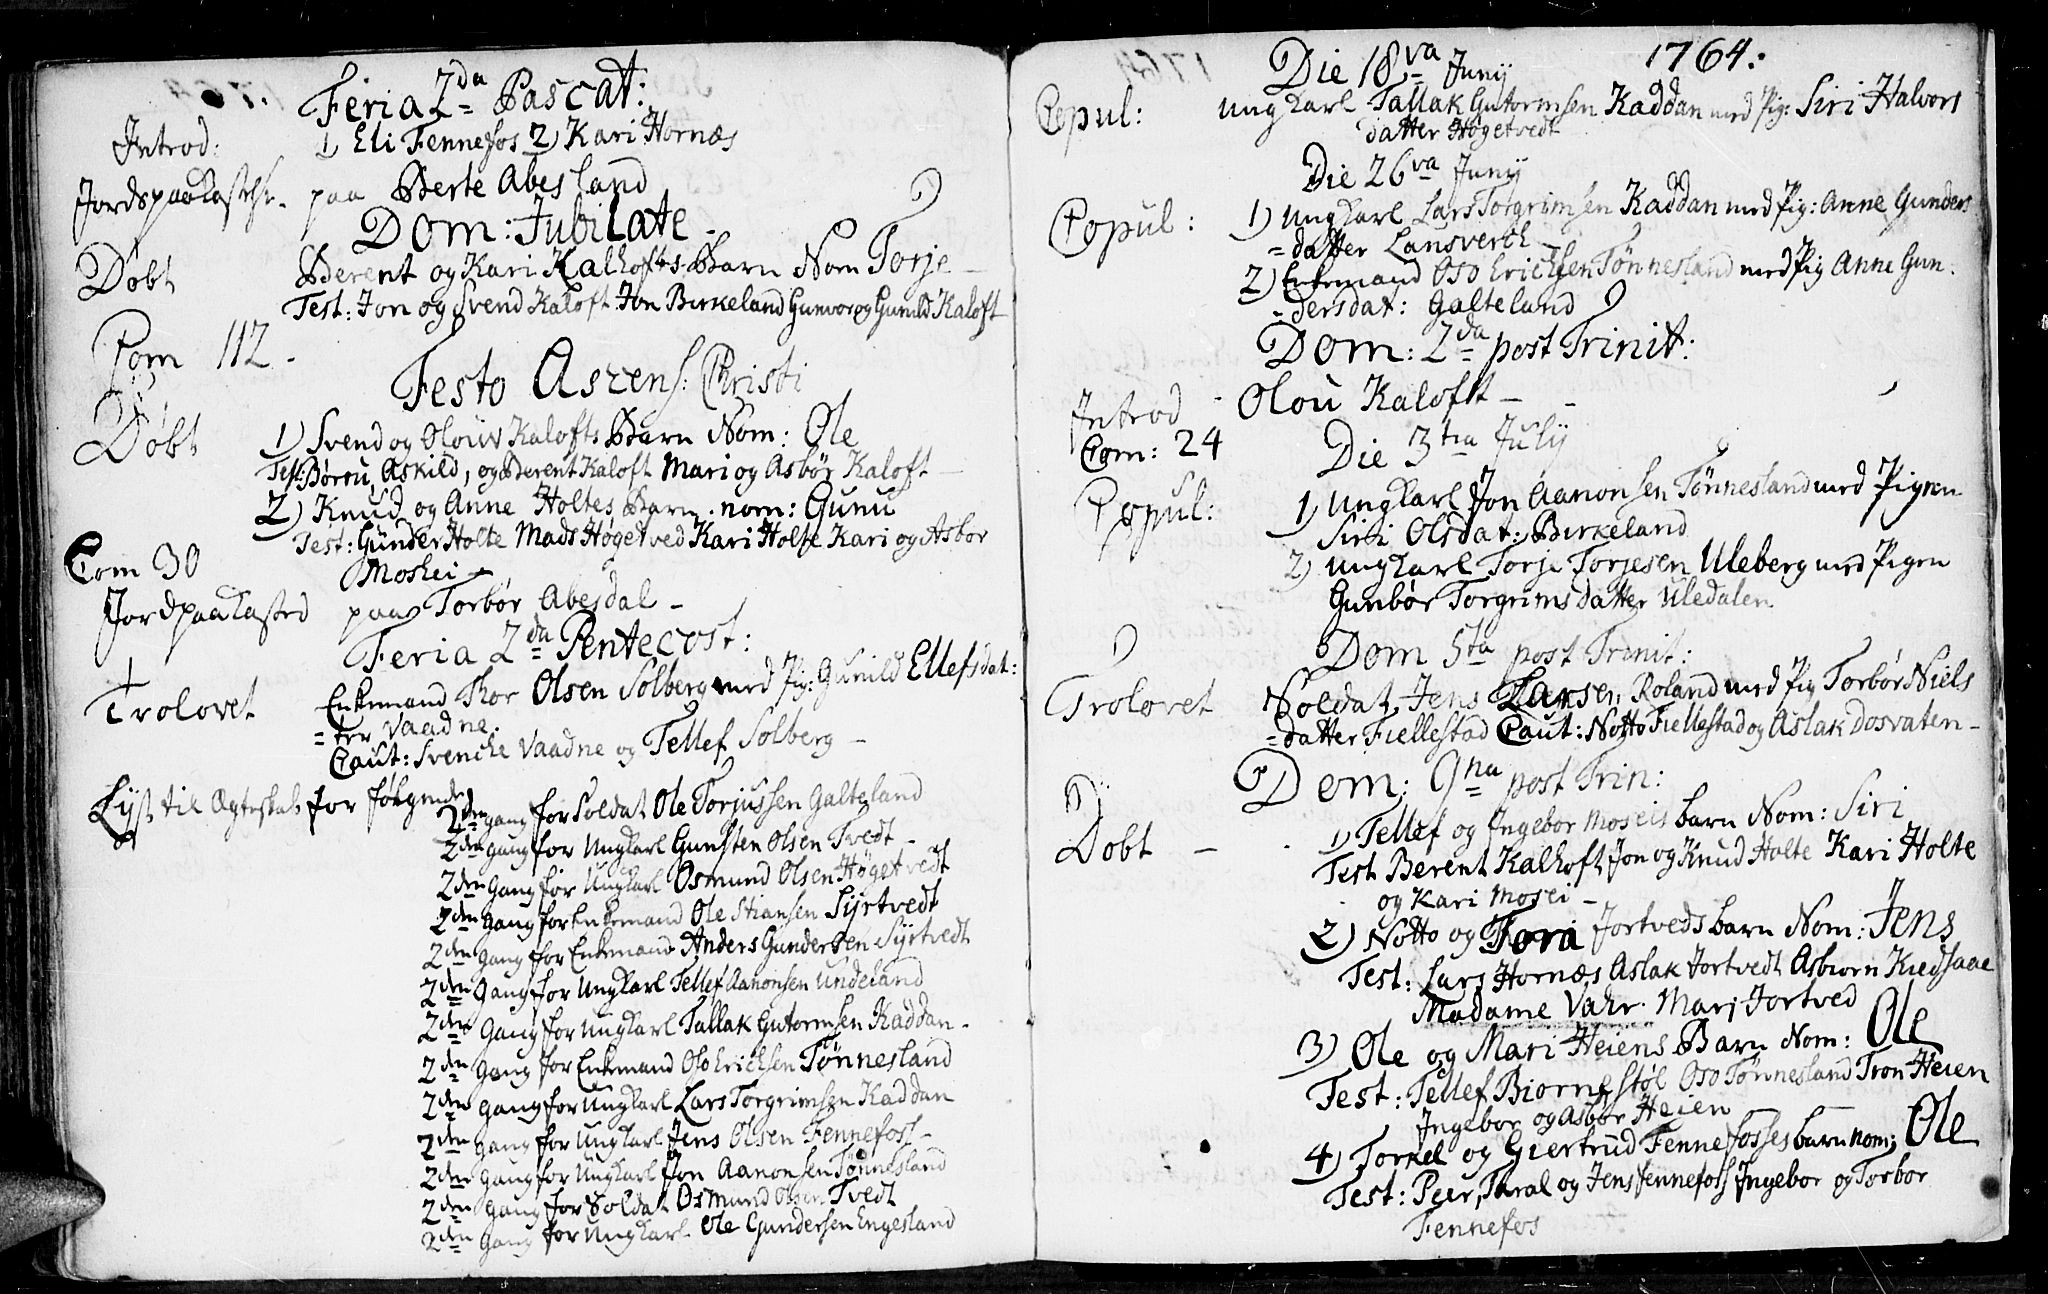 Feria 2da Pascat:
Introd: 1) Eli Fennefos 2) Kari Hornæs
Jordspaakastelse. paa Berte Abesland
Dom: Jubilate.
Døbt Berent og Kari Kalhofts Barn Nom Torje
Test: Jon og Svend Kaloft Jon Birkeland Gunvor og Gunild Kaloft
Com 112.
Festo Ascens: Christi
Døbt 1) Svend og Olouv Kalofts Barn Nom: Ole
Test: Børou, Askild, og Berent Kaloft Mari og Asbør Kaloft
2) Knud og Anne Holtes Barn nom: Gunu
Test: Gunder Holte Mads Høgetved Kari Holte Kari og Asbor
Moshei
Com 30
Jordpaakasted paa Torbør Abesdal
Feria 2da Pentecost:
Trolovet Enkemand Thor Olsen Solberg med Pig: Gunild Ellefsdat:
=ter Vaadne.
Caut: Svenche Vaadne og Tellef Solberg
Lyst til Ægteskab for følgende
2den gang for Soldat Ole Torjussen Galteland
2den gang for Ungkarl Gunsten Olsen Tvedt
2den Gang for Ungkarl Osmund Olsen Høgetvedt
2den gang for Enkemand Ole Stiansen Syrtvedt
2den gang for Enkemand Anders Gundersen Syrtvedt
2den Gang for Ungkarl Tellef Aanonsen Undeland
2den Gang for Ungkarl Tallak Gutormsen Kaddan.
2den Gang for Enkemand Oso Erichsen Tønnesland
2den gang for Ungkarl Lars Torgrimsen Kaddan
2den gang for Ungkarl Jens Olsen Fennefoss
2den gang for Ungkarl Jon Aanonsen Tønnesland
2den gang for Soldat Osmund Olsen Tvedt
2den gang for Ungkarl Ole Gundersen Engesland
1764:
Die 18va Junij
Copul: Ungkarl Tallak Gutormsen Kaddan med Pig: Siri Halvors
datter Høgetvedt
Die 26va Junij
Copul: 1) Ungkarl Lars Torgrimsen Kaddan med Pig: Anne Gunders
=datter Lansverck
2) Enkemand Oso Erichsen Tønnesland med Pig Anne Gun:
-dersdat: Galteland
Dom: 2da post Trinit:
Introd Olou Kaloft
Com: 24
Die 3tia Julij
Copul: 1) Ungkarl Jon Aanonsen Tønnesland med Pigen
Siri Olsdat: Birkeland
2) Ungkarl Torje Torjesen Uleberg med Pigen
Gunbør Torgrimsdatter Uledalen
Dom 5ta post Trinit:
Trolovet Soldat Jens Larsen Roland med Pig Torbør Niels
=datter Fiellestad Caut: Notto Fiellestad og Aslak Dosvaten
Dom: 9na post Trin:
Døbt 1) Tellef og Ingebor Moseis barn Nom: Siri
Test Berent Kalhoft Jon og Knud Holte Kari Holte
og Kari Mosei
2) Notto og Tora Jortveds barn Nom: Jens
Test: Lars Hornæs Aslak Jortvedt Asbiorn Kiedsaae
Madame Vahr. Marj Jortved
3) Ole og Mari Heiens Barn Nom: Ole
Test: Tellef Biornestøl Oso Tønnesland Tron Heien
Ingebor og Asbør Heien
4) Torkel og Giertrud Fennefosses barn nom: Ole
Test: Peer, Taral og Jens Fennefoss Ingebor og Torbor
Fennefos